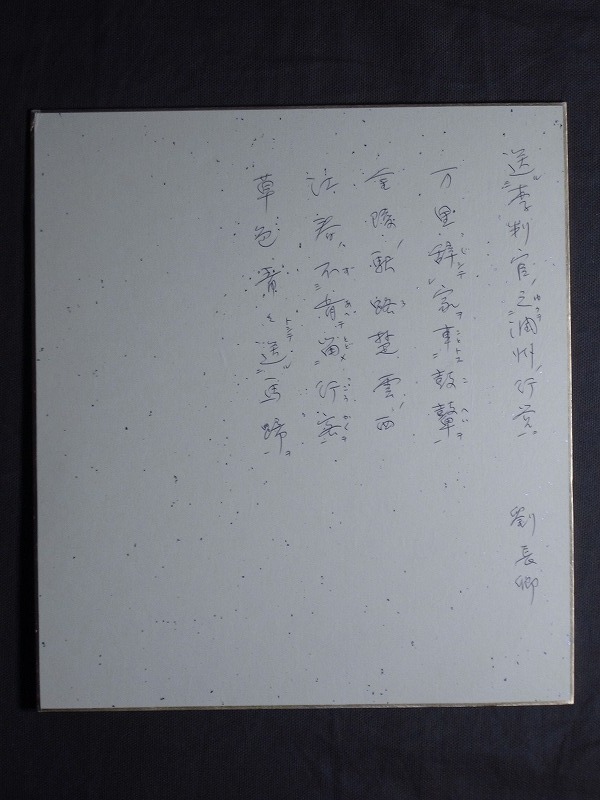 送李判官之潤州行営　劉長卿
万里辞家事鼓鼙
金陵駅路楚雲西
江春不肯留行客
草色青々送馬蹄